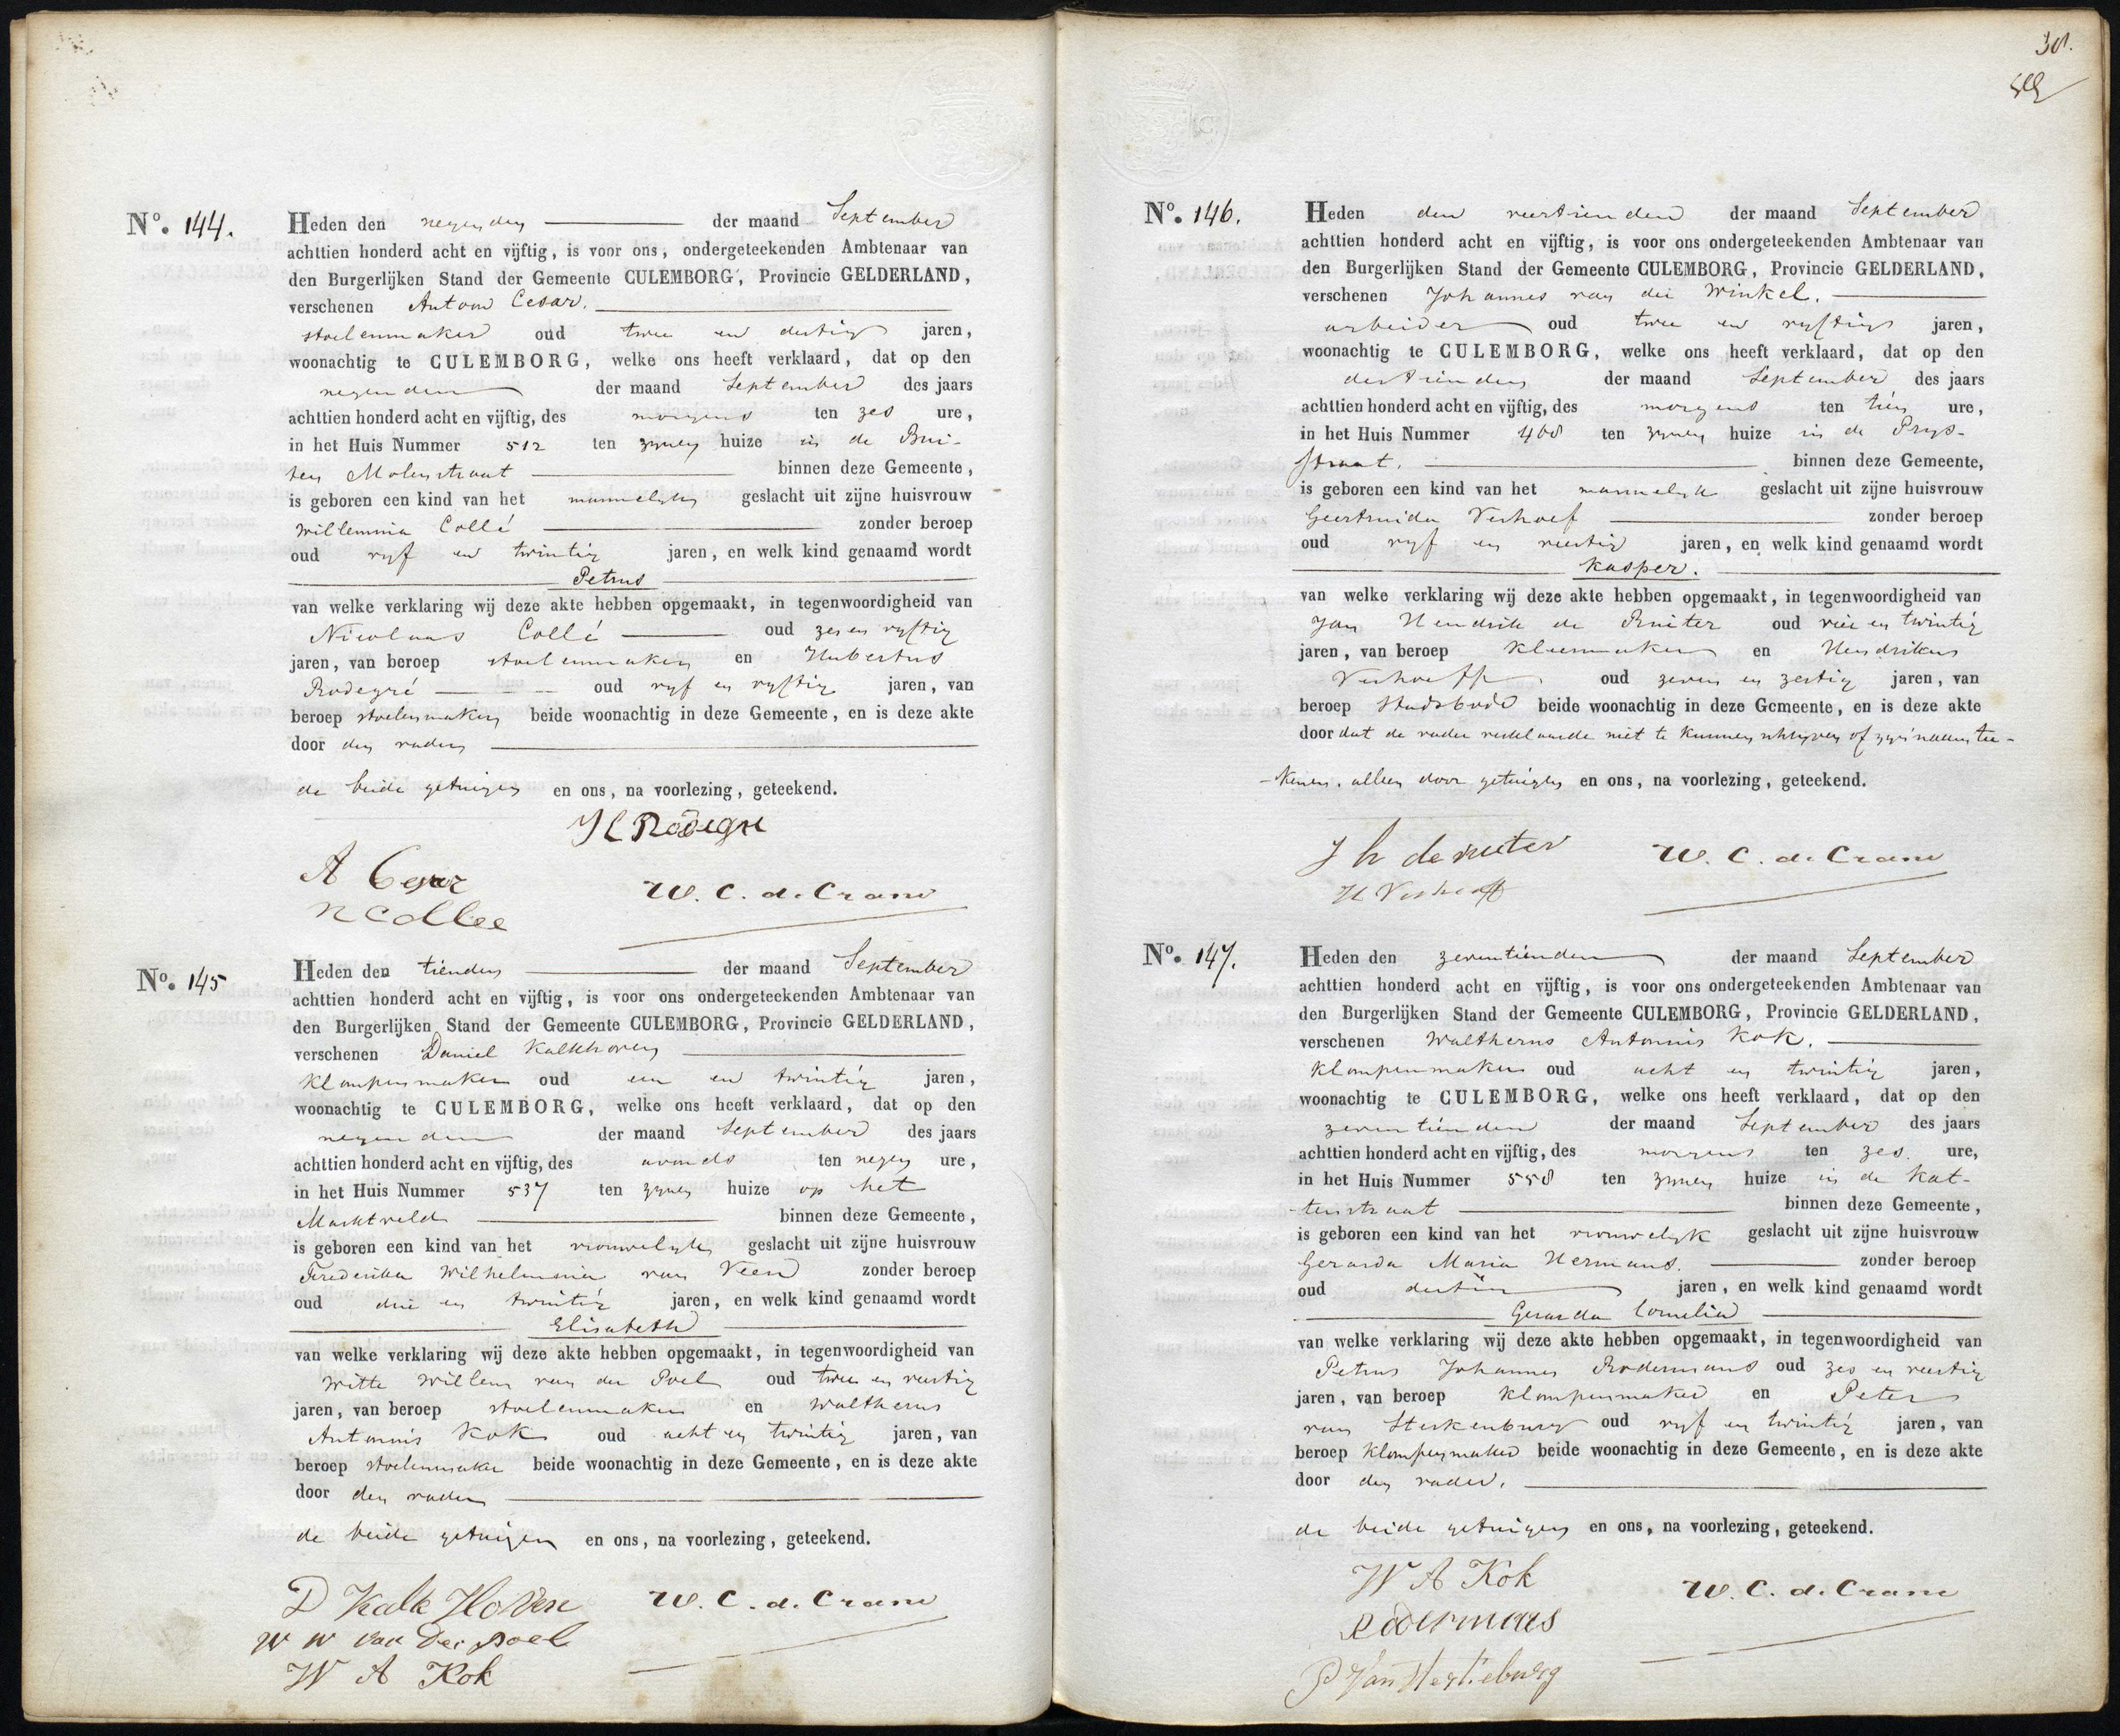 Nº. 144.
Heden den negenden der maand September
achttien honderd acht en vijftig, is voor ons, ondergeteekenden Ambtenaar van
den Burgerlijken Stand der Gemeente CULEMBORG, Provincie GELDERLAND,
verschenen Antoon Cesar.
stoelenmaker oud twee en dertig jaren,
woonachtig te CULEMBORG, welke ons heeft verklaard, dat op den
negenden der maand September des jaars
achttien honderd acht en vijftig, des morgens ten zes ure,
in het Huis Nummer 512 ten zynen huize in de Bui-
ten Molenstraat binnen deze Gemeente,
is geboren een kind van het mannelyk geslacht uit zijne huisvrouw
Willemina Collé zonder beroep
oud vyf en twintig jaren, en welk kind genaamd wordt
Petrus
van welke verklaring wij deze akte hebben opgemaakt, in tegenwoordigheid van
Nicolaas Collé oud zes en vyftig
jaren, van beroep stoelenmaker en Hubertus
Rodegré oud vyf en vyftig jaren, van
beroep stoelenmaker beide woonachtig in deze Gemeente, en is deze akte
door den vader
de beide getuigen en ons, na voorlezing, geteekend.
H Rodegre
A Cesar
N Collee
W. C. de Crane
Nº. 145
Heden den tienden der maand September
achttien honderd acht en vijftig, is voor ons ondergeteekenden Ambtenaar van
den Burgerlijken Stand der Gemeente CULEMBORG, Provincie GELDERLAND,
verschenen Daniel Kalkhoven
klompenmaker oud een en twintig jaren,
woonachtig te CULEMBORG, welke ons heeft verklaard, dat op den
negenden der maand September des jaars
achttien honderd acht en vijftig, des avonds ten negen ure,
in het Huis Nummer 537 ten zynen huize op het
Marktveld binnen deze Gemeente,
is geboren een kind van het vrouwelyk geslacht uit zijne huisvrouw
Frederika Wilhelmina van Veen zonder beroep
oud drie en twintig jaren, en welk kind genaamd wordt
Elisabeth
van welke verklaring wij deze akte hebben opgemaakt, in tegenwoordigheid van
Witte Willem van der Poel oud twee en veertig
jaren, van beroep stoelenmaker en Waltherus
Antonnis Kok oud acht en twintig jaren, van
beroep stoelenmaker beide woonachtig in deze Gemeente, en is deze akte
door den vader
de beide getuigen en ons, na voorlezing, geteekend.
D Kalk Hoven
W W van Der poel
W A Kok
W. C. de Crane
301.
Nº. 146.
Heden den veertienden der maand September
achttien honderd acht en vijftig, is voor ons ondergeteekenden Ambtenaar van
den Burgerlijken Stand der Gemeente CULEMBORG, Provincie GELDERLAND,
verschenen Johannes van die Winkel.
arbeider oud twee en vyftig jaren,
woonachtig te CULEMBORG, welke ons heeft verklaard, dat op den
dertienden der maand September des jaars
achttien honderd acht en vijftig, des morgens ten tien ure,
in het Huis Nummer 408 ten zynen huize in de Prys-
straat. binnen deze Gemeente,
is geboren een kind van het mannelyk geslacht uit zijne huisvrouw
Geertruida Verhoef zonder beroep
oud vyf en veertig jaren, en welk kind genaamd wordt
Kasper.
van welke verklaring wij deze akte hebben opgemaakt, in tegenwoordigheid van
Jan Hendrik de Ruiter oud vier en twintig
jaren, van beroep kleermaker en Hendrikus
Verhoeff oud zeven en zestig jaren, van
beroep stadsbode beide woonachtig in deze Gemeente, en is deze akte
door dat de vader verklaarde niet te kunnen schryven of zyn naam tee-
-kenen, alleen door getuigen en ons, na voorlezing, geteekend.
J h de ruiter
H Verhoeff
W. C. de Crane
Nº. 147.
Heden den zeventienden der maand September
achttien honderd acht en vijftig, is voor ons ondergeteekenden Ambtenaar van
den Burgerlijken Stand der Gemeente CULEMBORG, Provincie GELDERLAND,
verschenen Waltherus Antonnis Kok.
klompenmaker oud acht en twintig jaren,
woonachtig te CULEMBORG, welke ons heeft verklaard, dat op den
zeventienden der maand September des jaars
achttien honderd acht en vijftig, des morgens ten zes. ure,
in het Huis Nummer 558 ten zynen huize in de Kat-
-tenstraat binnen deze Gemeente,
is geboren een kind van het vrouwelyk geslacht uit zijne huisvrouw
Gerarda Maria Hermans. zonder beroep
oud dertig jaren, en welk kind genaamd wordt
Gerarda Cornelia
van welke verklaring wij deze akte hebben opgemaakt, in tegenwoordigheid van
Petrus Johannes Rodermans oud zes en veertig
jaren, van beroep klompenmaker en Peter
van Sterkenburg oud vyf en twintig jaren, van
beroep klompenmaker beide woonachtig in deze Gemeente, en is deze akte
door den vader.
de beide getuigen en ons, na voorlezing, geteekend.
W A Kok
Rodermans
P Van
W. C. de Crane